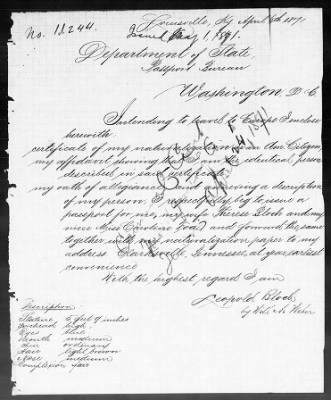 No. 12244
Louisville, Ky April 6th 1891.
Issued May 1, 1891.
Department of State,
Passport Bureau
Washington D. C
Intending to travel to Europe I enclose
herewith.
certificate of my naturalization as an Am. Citizen,
my affidavit showing that I am the identical person
described in said certificate
my oath of allegiance and giving a description
of my person, I respectfully beg to issue a
passport for me, my wife Therese Bloch and my
niece Miss Caroline and forward the same
together with my naturalization paper to my
address Clarksville, Tennessee, at your earliest
convenience
With the highest regard I am
Leopold Bloch,
by
Description
Stature 5 feet 9 inches
Forehead high
Eyes blue
Mouth medium
Chin ordinary
Hair light brown
Nose medium
Complexion fair